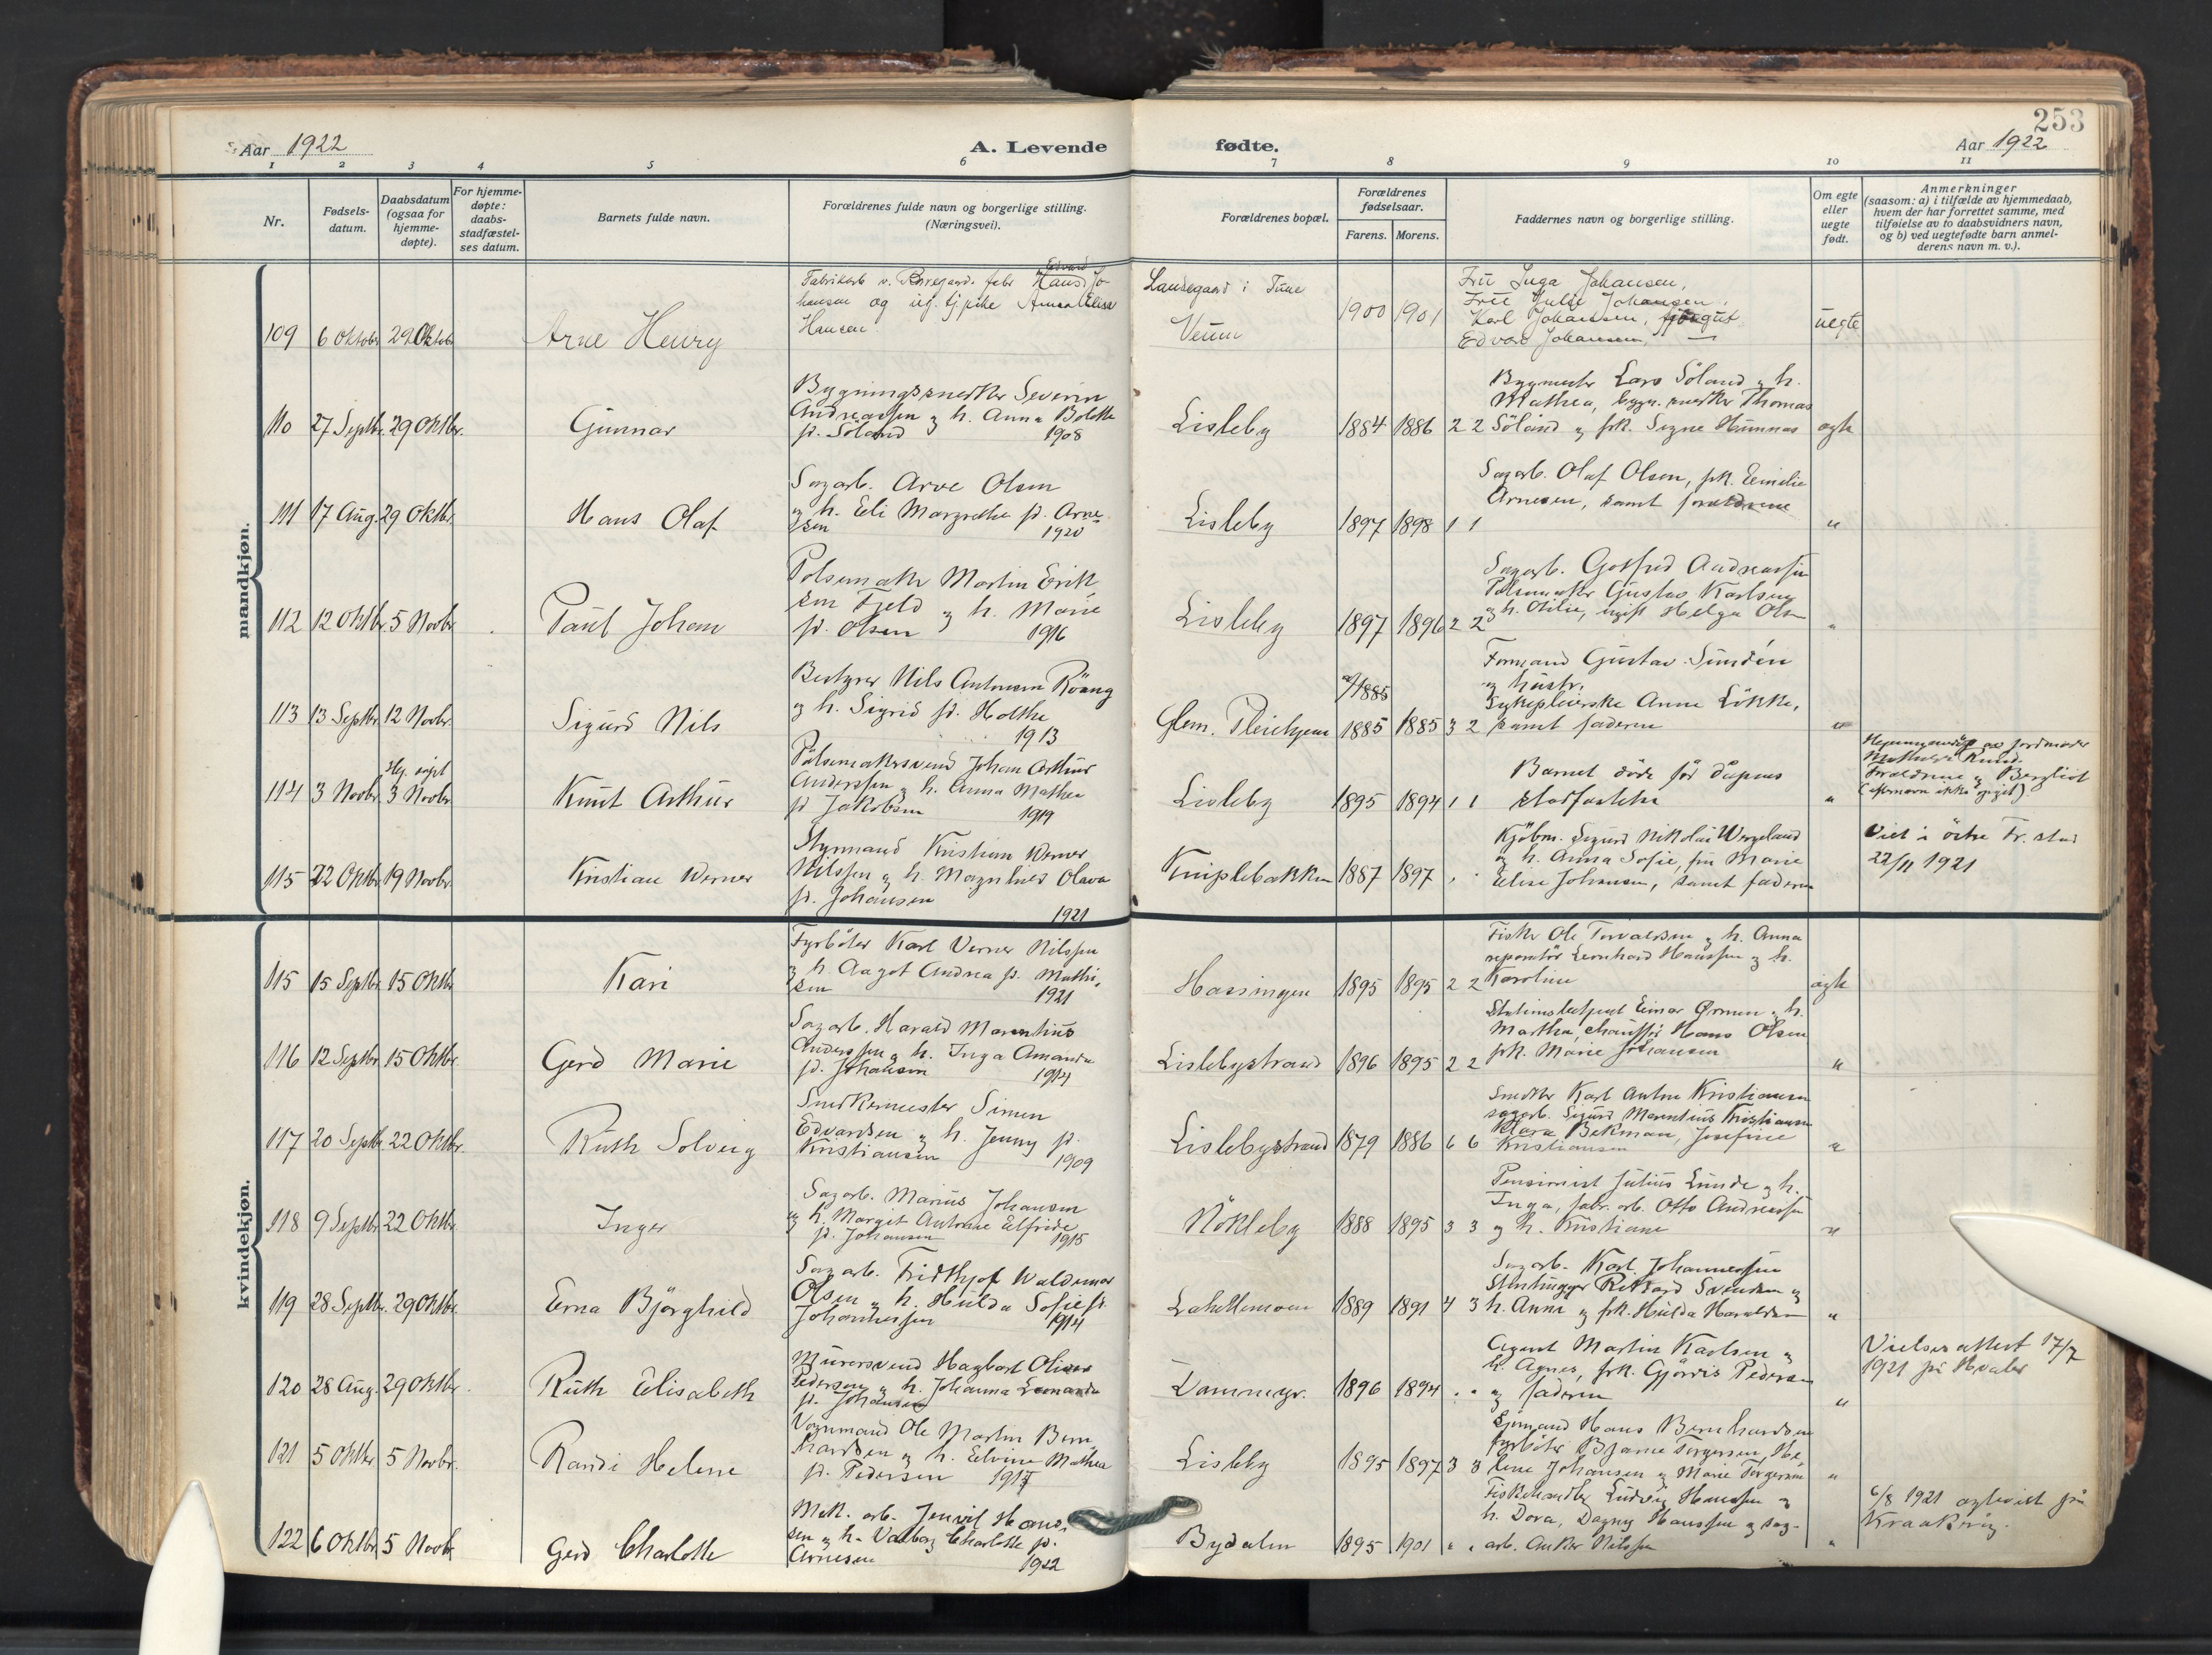 253
Aar 1922
A. Levende
fødte.
Aar 1922
1 2 3 4 5 6 7 8 9 10 11
Nr.
Fødsels-
datum.
Daabsdatum
(ogsaa for
hjemme-
døpte).
For hjemme-
døpte:
daabs-
stadfæstel-
ses datum.
Barnets fulde navn.
Forældrenes fulde navn og borgerlige stilling.
(Næringsvei).
Forældrenes bopæl.
Forældrenes
fødselsaar.
Farens. Morens.
Faddernes navn og borgerlige stilling.
Om egte
eller
uegte
født.
Anmerkninger
(saasom: a) i tilfælde av hjemmedaab,
hvem der har forrettet samme, med
tilføielse av to daabsvidners navn,
og b) ved uegtefødte barn anmel-
derens navn m. v.).
mandkjøn.
109 6 Oktobr 29 Oktob
Arne Henry
Edvard
Hans Jo-
hansen og Anna Elise
Hansen
i Tune
Veum
1900 1901
Frü Inga Johansen,
Frü Johansen,
Karl Johansen,
Edvard Johansen,
uegte
110 27 Septbr. 29 Oktbr.
Gunnar
Bygningssnedker Severin
Andreassen og h. Anna Bolette
f. Söland 1908
Lisleby
1884 1886 2 2
Bygmester Lars Söland og h.
Mathea, bygn. snedker Thomas
Söland og frk. Signe Humnas
egte
111 17 Aug. 29 Oktbr.
Hans Olaf
Sagarb. Arve Olsen
og h. Eli Margrethe f. Arne-
sen 1920
Lisleby
1897 1898 1 1
Sagarb. Olaf Olsen, frk. Emilie
Arnesen, samt forældrene
"
112 12 Oktbr 5 Novbr
Paul Johan
Pölsemaker Martin Erik
sen Fjeld og h. Marie
f. Olsen 1916
Lisleby
1897 1896 2 2
Sagarb. Gotfred Andreassen
Pölsemaker Gustav Karlsen
og h. Otilie, ugift Helga Olsen
"
113 13 Septbr 12 Novbr.
Sigurd Nils
Bestyrer Nils Antonsen Röang
og h. Sigrid f. Holthe
1913
Glem. Pleiehjem
1885
1885 1885 3 2
Formand Gustav Sundén
og hustr.
Sykepleierske Anne Lökke,
samt faderen
"
114 3 Novbr. 3 Novbr
Knut Arthur
Pölsemakersvend Johan Arthur
Anderssen og h. Anna Mathea
f. Jakobsen 1919
Lisleby
1895 1894 1 1
Barnet döde för dåpens
stadfæstelse
"
Hjemmedöpt av jordmoder
Forældrene og Bergliot
(efternavn ikke opgit).
115 22 Oktbr. 19 Novbr.
Kristian Werner
Styrmand Kristian Werner
Nilssen og h. Magnhild Olava
f. Johansen
1921
Kniplebakken
1887 1897
Kjöbm. Sigurd Nikolai Wergeland
og h. Anna Sofie, fru Marie
Elise Johansen, samt faderen
Viet i östre Fr. stad
22/11 1921
kvindekjøn.
115 15 Septbr. 15 Oktbr
Kari
Fyrböter Karl Verner Nilssen
og h. Aagot Andrea f. Mathi-
sen 1921
Hassingen
1895 1895 2 2
Fisker Ole Torvaldsen og h. Anna
reparatör Leonhard Hanssen og h.
Karoline
egte
116 12 Septbr. 15 Oktbr.
Gerd Marie
Sagarb. Harald Marentius
Anderssen og h. Inga Amanda
f. Johansen 1914
Lislebystrand
1896 1895 2 2
Einar Ormen og h.
Martha, chaufför Hans Olsen
frk. Marie Johansen
"
117 20 Septbr. 22 Oktbr.
Ruth Solveig
Snedkermester Simen
Edvardsen og h. Jenny f.
Kristiansen 1909
Lislebystrand
1879 1886 6 6
Snedker Karl Anton Kristiansen
sagarb. Sigurd Marentius Kristiansen
Klara Bekman, Josefine
Kristiansen
"
118 9 Septbr. 22 Oktbr.
Inger
Sagarb. Marius Johansen
og h. Margit Antonie Elfride
f. Johansen 1915
Nökleby
1888 1895 3 3
Pensionist Julius Lunde og h.
Inga, fabr. arb. Otto Andreassen
og h. Kristiane
"
119 28 Septbr. 29 Oktbr.
Erna Björghild
Sagarb. Fridthjof Waldemar
Olsen og h. Hulda Sofie f.
Johannessen 1914
Labellemoen
1889 1891 4 3
Sagarb. Karl Johannessen
Stenhugger Rikard Svendsen og
h. Anna og frk. Hulda Haraldsen
"
120 28 Aug. 29 Oktbr.
Ruth Elisabeth
Murersvend Hagbart Oliver
Pedersen og h. Johanna Leonarda
f. Johansen
Dammyr.
1896 1894
Agent Martin Karlsen og
h. Agnes, frk. Gjördis Pedersen
og faderen
"
Vielsesattest 17/7
1921 på Hvaler
121 5 Oktbr 5 Novbr.
Randi Helene
Vognmand Ole Martin Bern
hardsen og h. Edvine Mathea
f. Pedersen
Lisleby
1895 1897 3 3
Sjömand Hans Bernhardsen
fyrböter Bjarne Torgersen, He-
lene Johansen og Marie Torgersen
"
122 6 Oktbr. 5 Novbr
Gerd Charlotte
Mek. arb. Jenvil Hans-
sen og h. Valborg Charlotte f.
Arnesen 1922
Bydalen
1895 1901 " "
Fiskehandler Ludvig Hanssen og
h. Dora, Dagny Hanssen og sag-
arb. Anker Nilssen
"
6/8 1921 egteviet på
Kraakeröy.